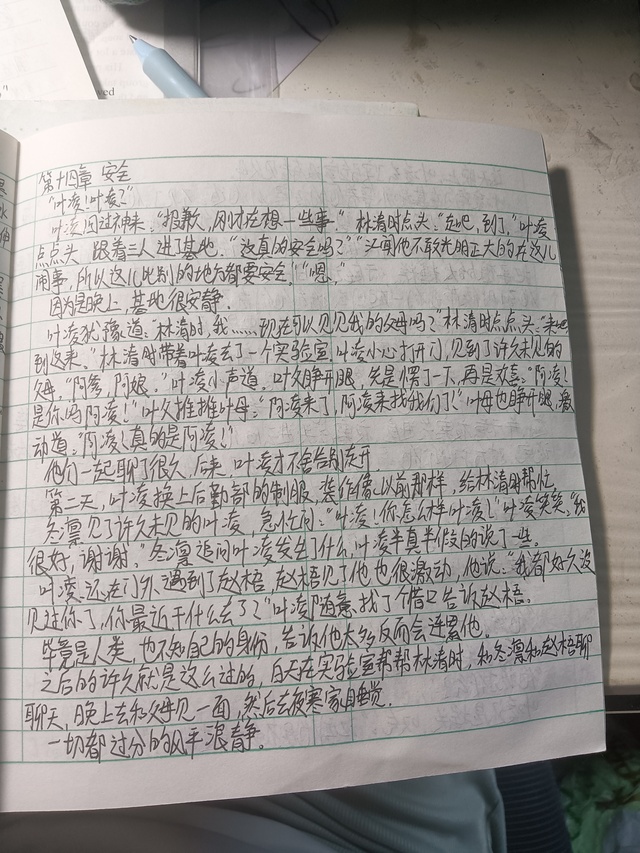 ved
第十四章 安全
“叶凌！叶凌？”
叶凌回过神来。“抱歉，刚才在想一些事。”林清时点头。“走吧，到了。”叶凌
点点头，跟着二人进了基地。“这真的安全吗？”“江闻他不敢光明正大的在这儿
闹事，所以这儿比别的地方都要安全。”“嗯。”
因为是晚上，基地很安静。
叶凌犹豫道：“林清时，我……现在可以见见我的父母吗？”林清时点点头：“来吧，
到这来。”林清时带着叶凌去了一个实验室，叶凌小心打开门，见到了许久未见的
父母。“阿爹，阿娘。”叶凌小声道。叶父睁开眼，先是愣了一下，再是欢喜：“阿凌！
是你吗阿凌！”叶父推推叶母：“阿凌来了，阿凌来找我们了！”叶母也睁开眼，激
动道：“阿凌！真的是阿凌！”
他们一起聊了很久，后来，叶凌才不舍告别离开。
第二天，叶凌换上后勤部的制服，装作像以前那样，给林清时帮忙。
冬凛见了许久未见的叶凌，急忙问：“叶凌！你怎么样叶凌！”叶凌笑笑：“我
很好，谢谢。”冬凛追问叶凌发生了什么，叶凌半真半假的说了一些。
叶凌还在门外遇到了赵梧，赵梧见了他也很激动，他说：“我都好久没
见过你了，你最近干什么去了？”叶凌随意找了个借口告诉赵梧。
毕竟是人类，也不知自己的身份，告诉他太多反而会连累他。
之后的许久就是这么过的，白天在实验室帮帮林清时，和冬凛和赵梧聊
聊天，晚上去和父母见一面，然后去夜寒家里睡觉。
一切都过分的风平浪静。